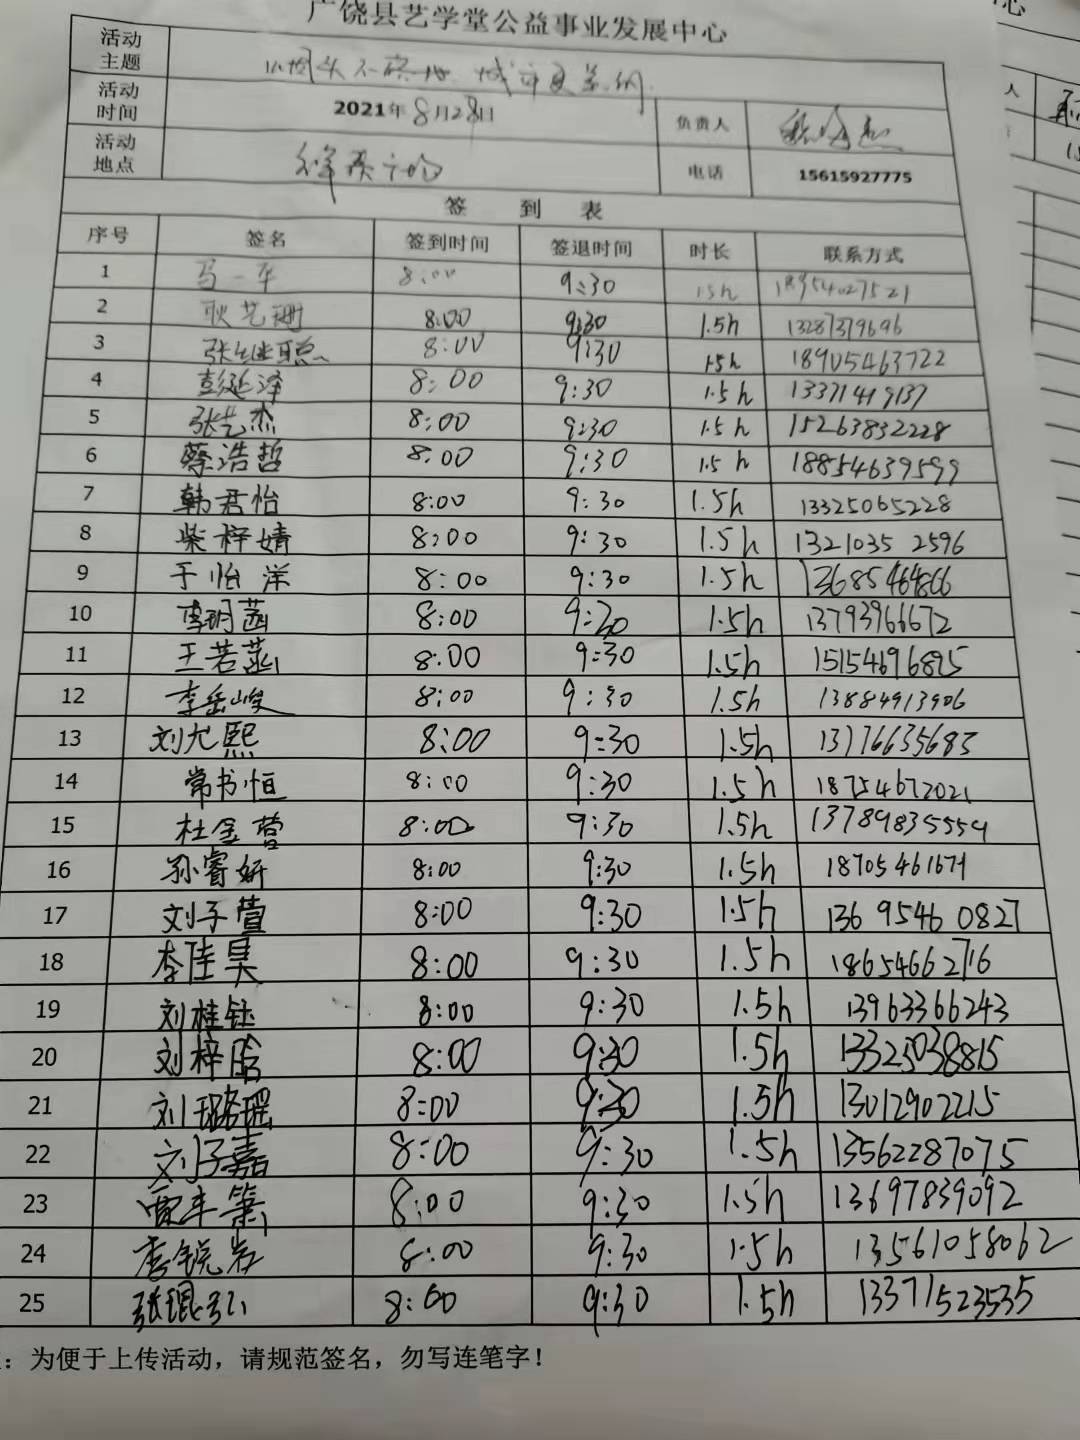 广饶县艺学堂公益事业发展中心
活动主题 烟头不落地 城市更美丽
活动时间 2021年8月28日 负责人
活动地点 电话 15615927775
签到表
序号 签名 签到时间 签退时间 时长 联系方式
1 马一车 8:00 9:30 1.5h 18954027521
2 耿艺珊 8:00 9:30 1.5h 13287379696
3 张继聪 8:00 9:30 1.5h 18905463722
4 彭延泽 8:00 9:30 1.5h 13371419137
5 张艺杰 8:00 9:30 1.5h 15263832228
6 蔡浩哲 8:00 9:30 1.5h 18854639599
7 韩君怡 8:00 9:30 1.5h 13325065228
8 柴梓婧 8:00 9:30 1.5h 1321035 2596
9 于怡洋 8:00 9:30 1.5h 13685464866
10 李玥菡 8:00 9:30 1.5h 13793966672
11 王若菡 8:00 9:30 1.5h 15154696825
12 李岳峻 8:00 9:30 1.5h 13884913906
13 刘尤熙 8:00 9:30 1.5h 13176635683
14 常书恒 8:00 9:30 1.5h 18754672021
15 杜金营 8:00 9:30 1.5h 13789835559
16 孙睿妍 8:00 9:30 1.5h 18705461671
17 刘子萱 8:00 9:30 1.5h 136 9546 0827
18 李佳昊 8:00 9:30 1.5h 18654662716
19 刘桂钰 8:00 9:30 1.5h 13963366243
20 刘梓晗 8:00 9:30 1.5h 13325038815
21 刘璐瑶 8:00 9:30 1.5h 13012902215
22 刘子嘉 8:00 9:30 1.5h 13562287075
23 8:00 9:30 1.5h 13697839092
24 李锐岩 8:00 9:30 1.5h 13561058062
25 张琨弘 8:00 9:30 1.5h 13371523535
：为便于上传活动，请规范签名，勿写连笔字！